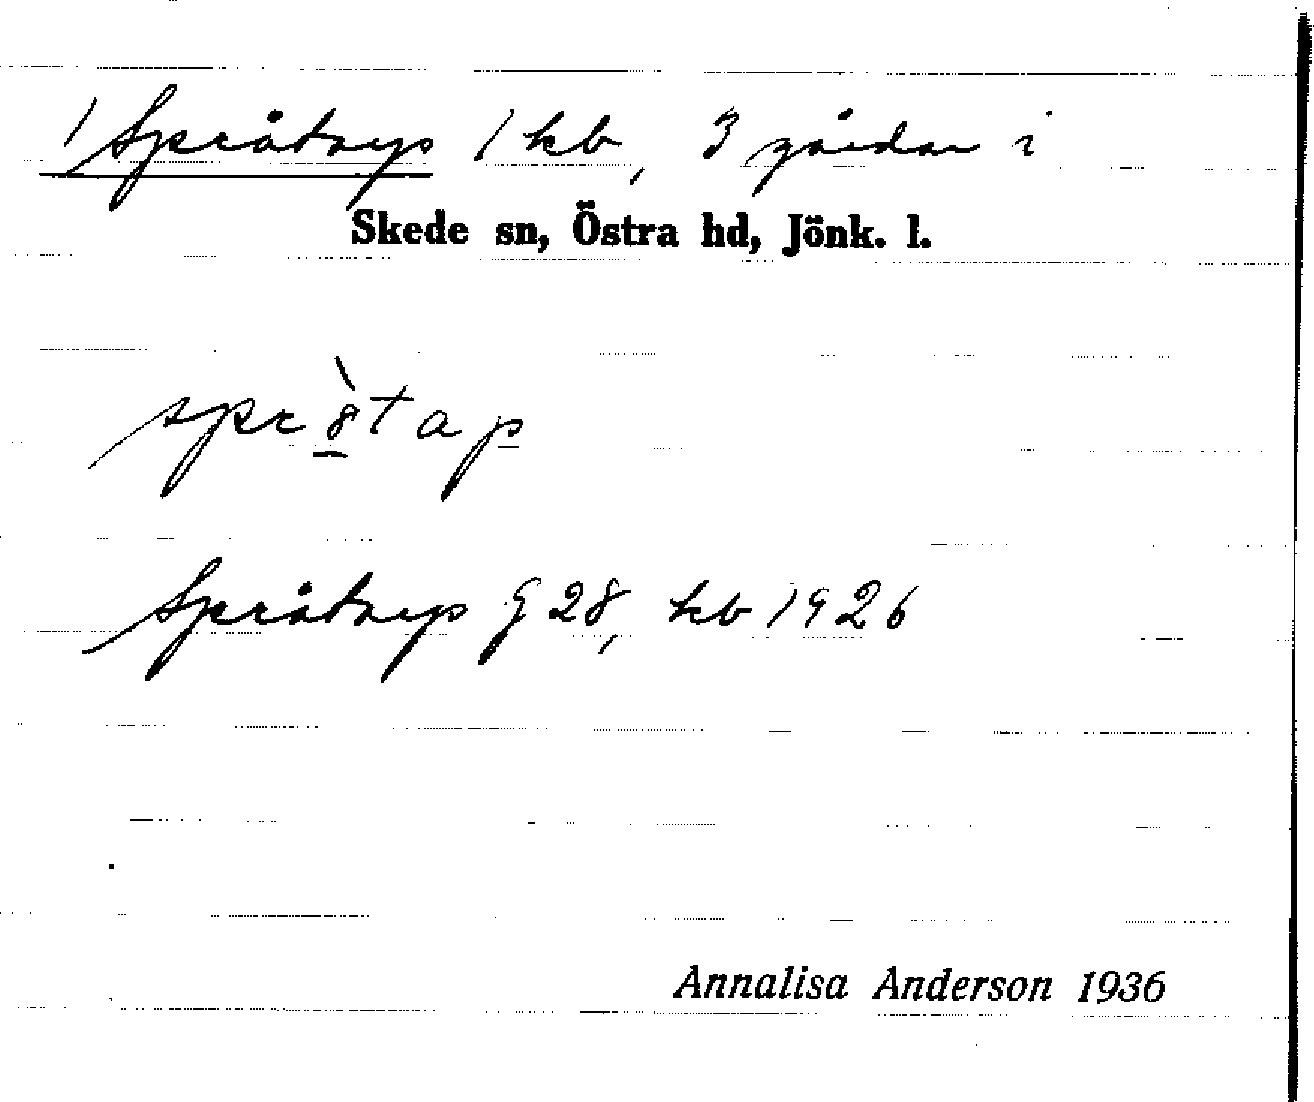 1 Språtorp 1 kb, 3 gårdar i
Skede sn, Östra hd, Jönk. l.
Språtorp G 28, kb 1926
Annalisa Anderson 1936